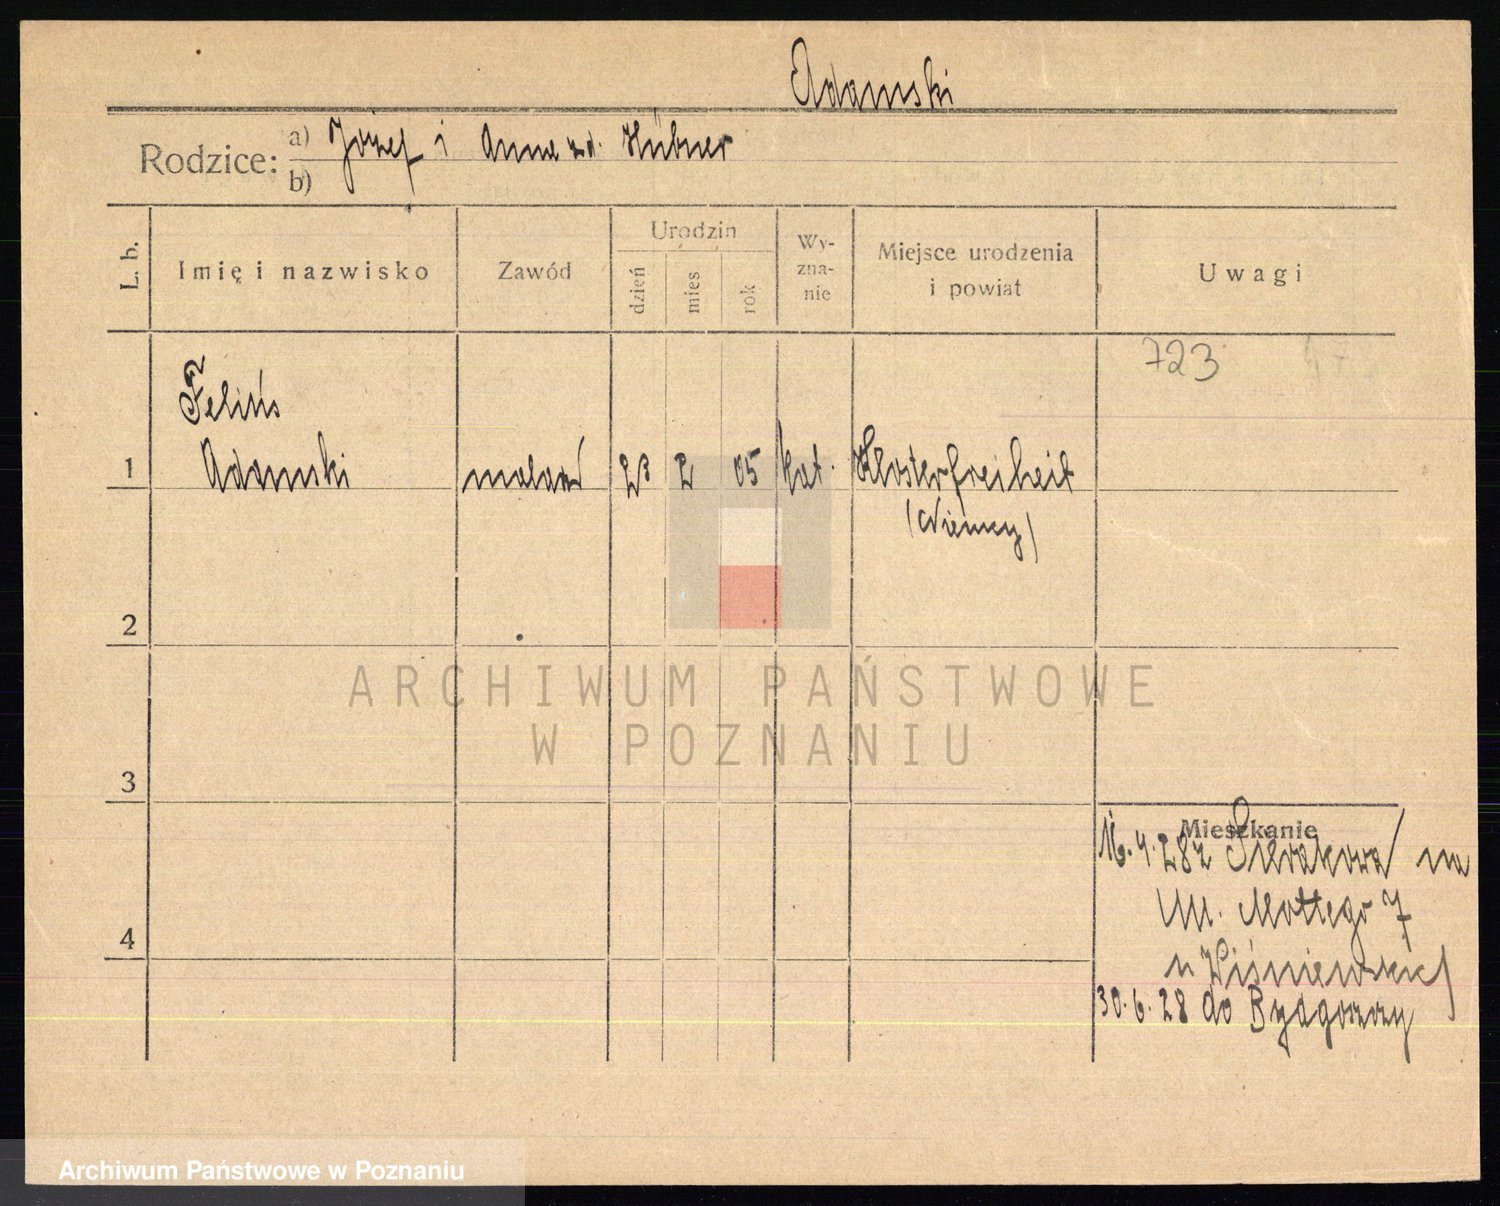 Adamski
Rodzice: a) Józef i Anna zd. Hübner
b)
L. b. Imię i nazwisko Zawód Urodzin dzień mies rok Wyzna-nie Miejsce urodzenia i powiat Uwagi
723
Feliks
1 Adamski malarz 23 2 05 kat. Klosterfreiheit
(Niemcy)
2
ARCHIWUM PAŃSTWOWE
W POZNANIU
3
Mieszkanie
16.4.28 z Sierakowa na
Ul. Mottego 7
4
u Wiśniewskich
30.6.28 do Bydgoszczy
Archiwum Państwowe w Poznaniu